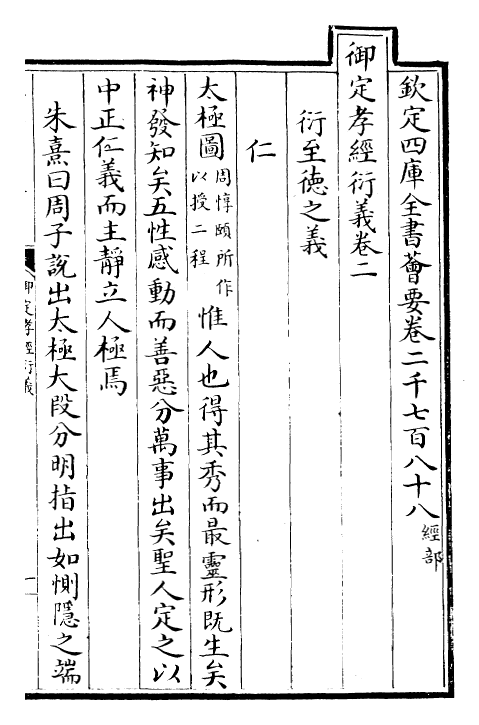 欽定四庫全書薈要卷二千七百八十八 經部
御定孝經衍義卷二
衍至德之義
仁
太極圖 周惇頤所作以授二程 惟人也得其秀而最靈形既生矣
神發知矣五性感動而善惡分萬事出矣聖人定之以
中正仁義而主靜立人極焉
朱熹曰周子說出太極大段分明指出如惻隱之端
御定孝經衍義
一